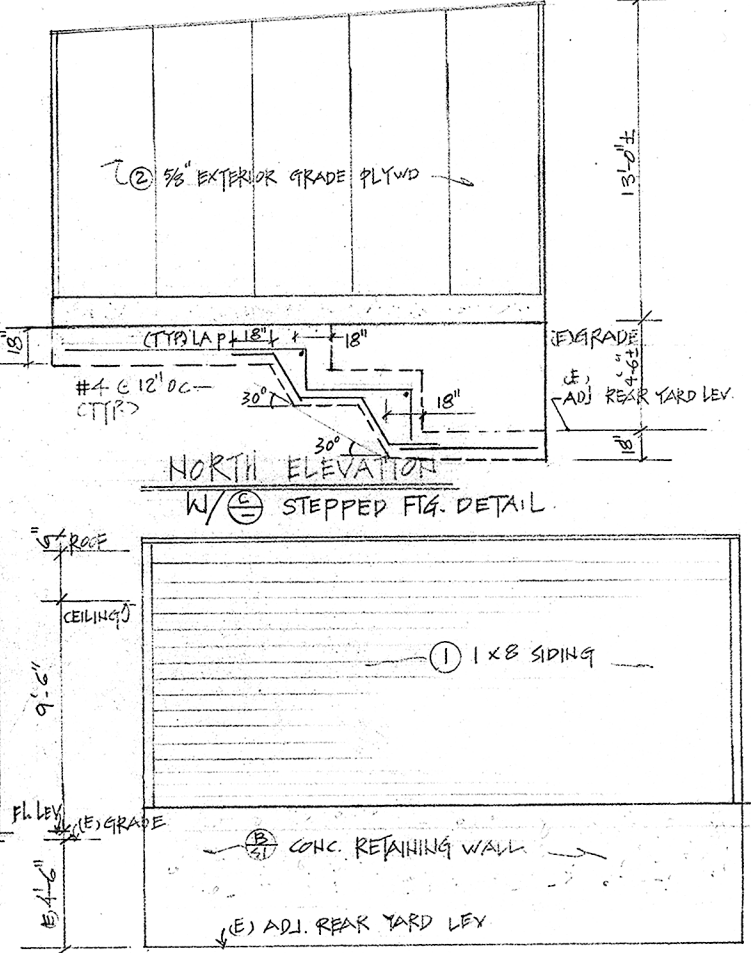 ② 5/8" EXTERIOR GRADE PLYWD
13'-0"±
18"
(TYP.) LAP 18"
18"
(E) GRADE
4'-6"±
#4 @ 12" OC
(TYP.)
30°
18"
(E)
ADJ REAR YARD LEV.
30°
18"
NORTH ELEVATION
W/ C STEPPED FTG. DETAIL
6"
ROOF
CEILING
① 1 x 8 SIDING
9'-6"
FL. LEV
(E) GRADE
B
S1
CONC. RETAINING WALL
(E) 4'-6"
(E) ADJ. REAR YARD LEV